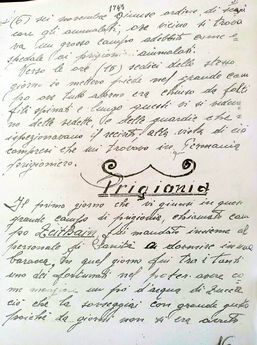 1943
(6) sei novembre giunse ordine di
care gli ammalati, ove vicino si trova
va un grosso campo adibito come o
spedale ai prigionieri ammalati.
Verso le ore (16) sedici dello stesso
giorno si metteva piede nel grande cam
po ove tutt'attorno era chiuso da fatti
fili spinati e lungo questi vi si vedeva
no delle vedette, le guardie che
ispezionavano il recinto, alla vista di ciò
compresi che mi trovavo in Germania
prigioniero.
Prigionia
Il primo giorno che vi giunsi in quel
grande campo di prigionia, chiamato cam
po Zeitbain, fui mandato insieme al
personale di Sanità a dormire in una
baracca, in quel giorno fui tra i tanti
uno dei fortunati nel poter avere co
me un po' d'acqua di zucca
ciò che la sorseggiai con grande gusto
poiché da giorni non si era avuto